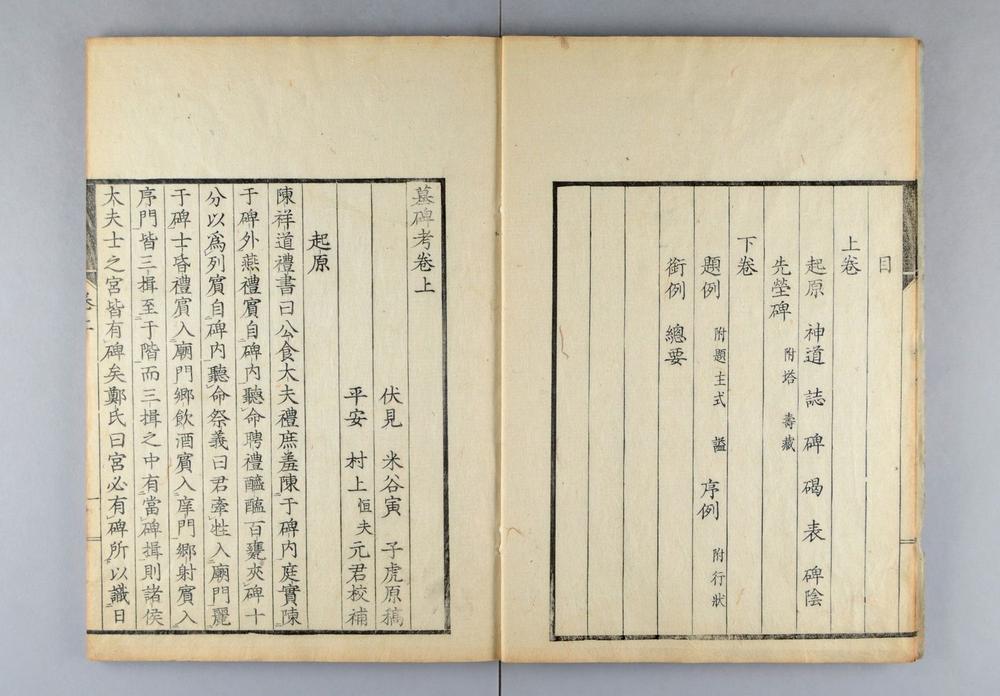 目
上卷
起原 神道 誌 碑 碣 表 碑陰
先塋碑 附塔 壽藏
下卷
題例 附題主式 謚 序例 附行狀
銜例 總要
墓碑考卷上
伏見 米谷寅 子虎原稿
平安 村上恒夫元君校補
起原
陳祥道禮書曰公食大夫禮庶羞陳于碑內庭實陳
于碑外燕禮賓自碑內聽命聘禮醯醢百甕夾碑十
分以爲列賓自碑內聽命祭義曰君牽牲入廟門麗
于碑士昏禮賓入廟門鄉飲酒賓入庠門鄉射賓入
序門皆三揖至于階而三揖之中有當碑揖則諸侯
大夫士之宮皆有碑矣鄭氏曰宮必有碑所以識日